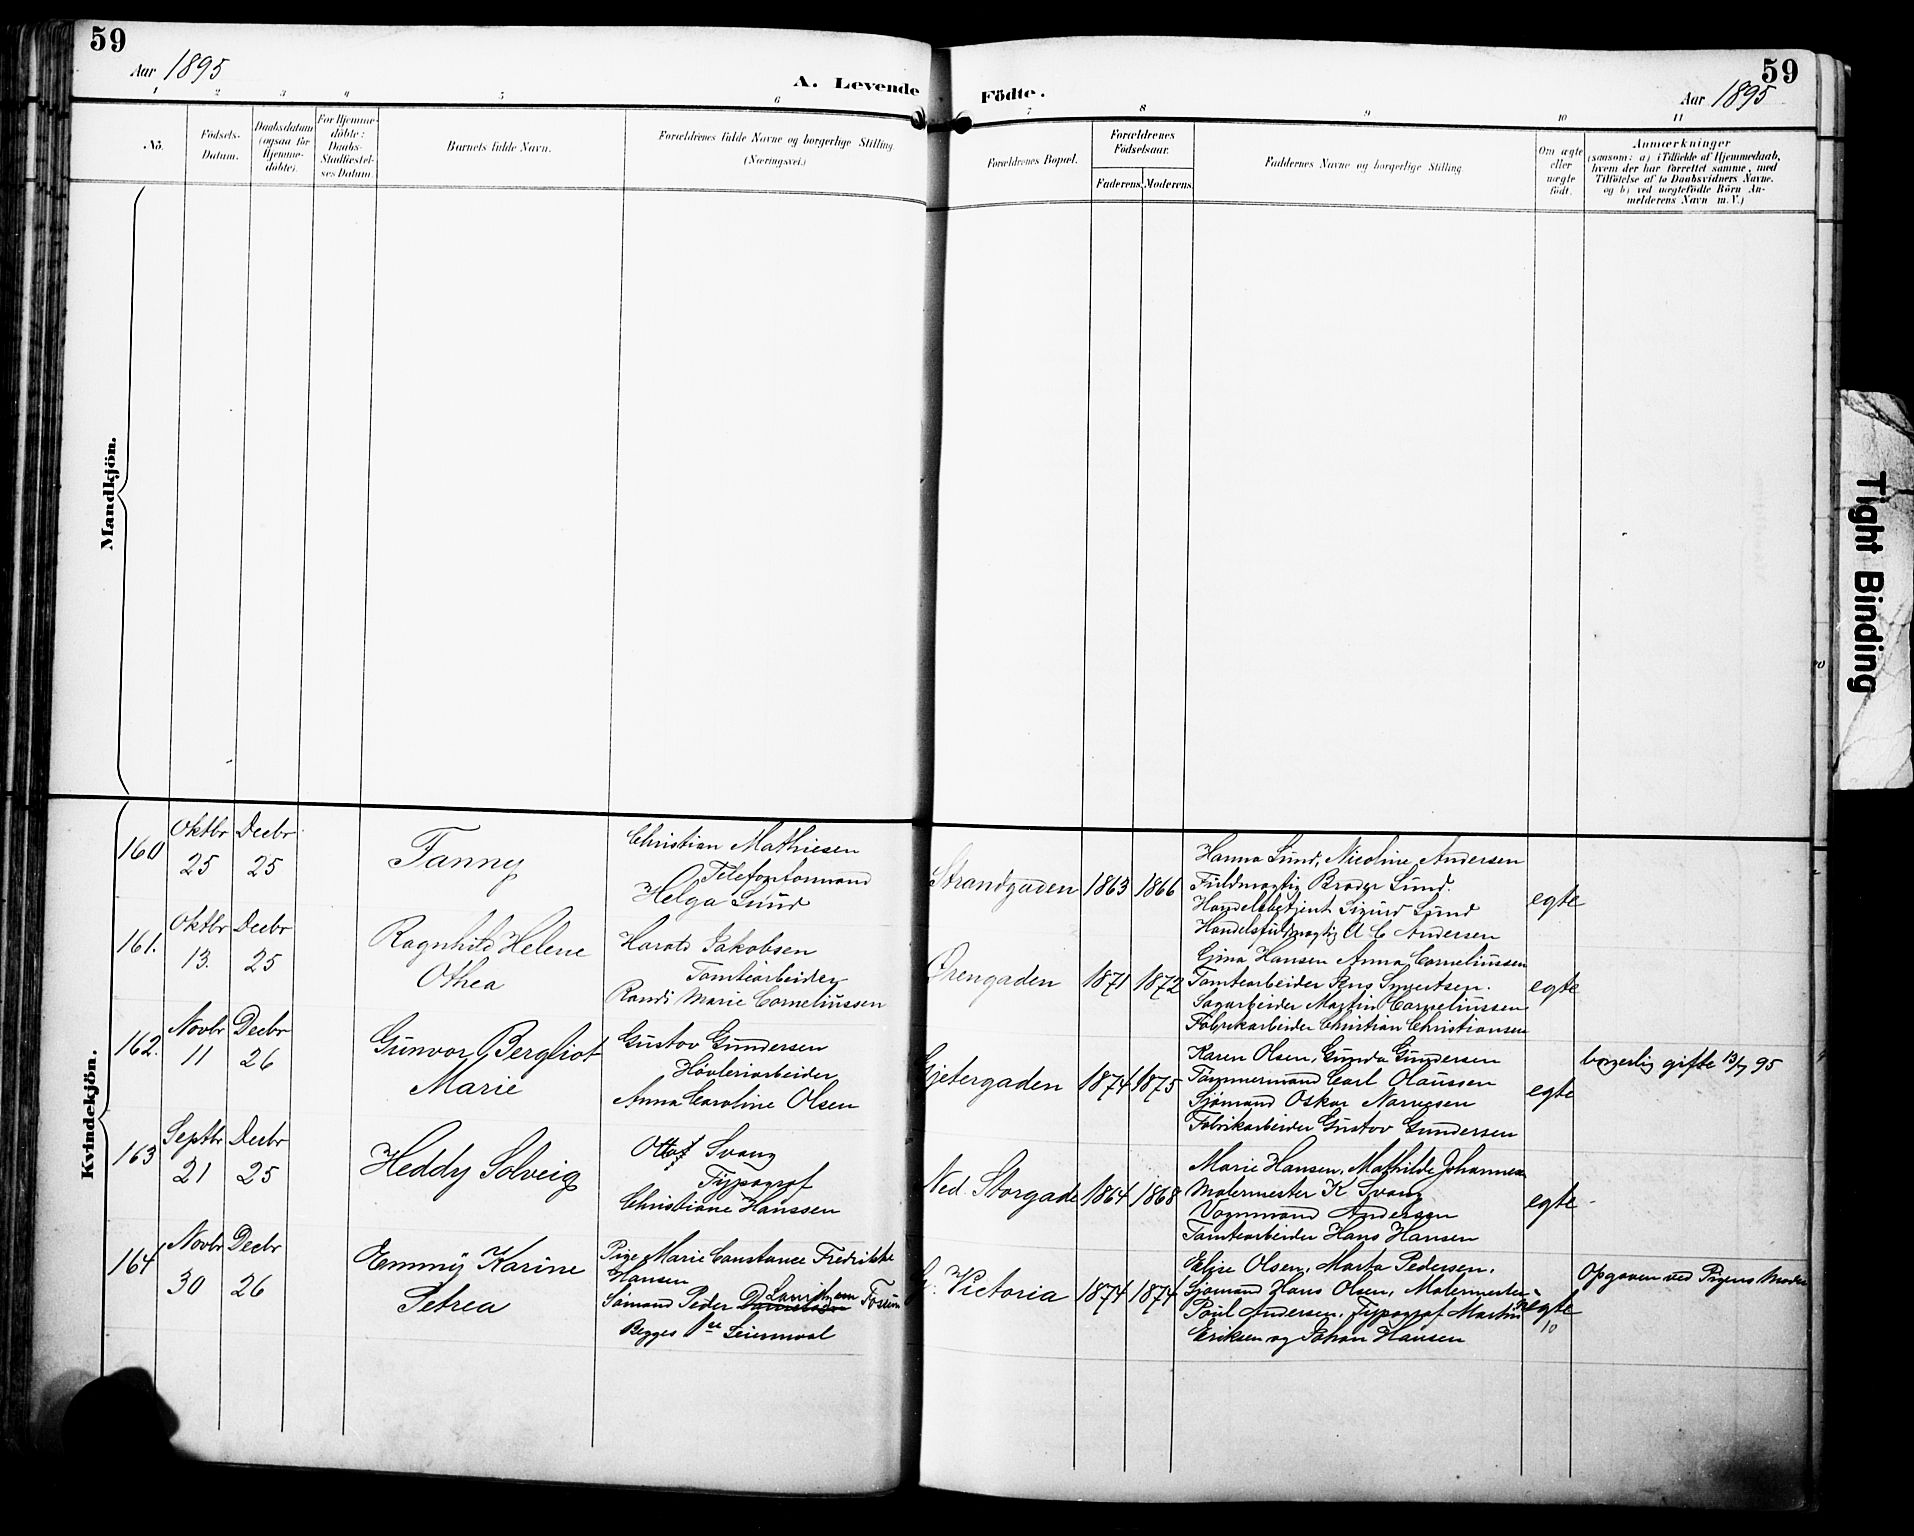 59
Aar 1895
A. Levende
Födte.
59
Aar 1895
1 2 3 4 5 6 7 8 9 10 11
No.
Födsels-
Datum.
Daabsdatum
(ogsaa för
Hjemme-
döbte).
For Hjemme-
döbte:
Daabs-
Stadfæstel-
ses Datum.
Barnets fulde Navn.
Forældrenes fulde Navne og borgerlige Stilling
(Næringsvei.)
Forældrenes Bopæl.
Forældrenes
Födselsaar.
Faderens. Moderens.
Faddernes Navne og borgerlige Stilling
Om ægte
eller
uægte
födt.
Anmærkninger
(saasom: a) i Tilfælde af Hjemmedaab,
hvem der har forrettet samme, med
Tilföielse af to Daabsvidners Navne.
og b) ved uægtefödte Börn An-
melderens Navn m. V.)
Mandkjön.
Kvindekjön.
160
Oktbr
25
Decbr
25
Fanny
Christian Mathiesen
Telefonformand
Helga Lund
Strandgaden
1863
1866
Hanna Lund, Nicoline Andersen
Fuldmægtig Broder Lund.
Handelsbetjent Sigurd Lund
Handelsfuldmægtig A C Andersen
egte
161.
Oktbr
13.
Decbr
25
Ragnhild Helene
Othea
Harald Jakobsen
Tomtearbeider
Randi Marie Corneliussen
Ørengaden
1871
1872
Gina Hansen Anna Corneliussen
Tomtearbeider Jens Syvertsen.
Sagarbeider Martin Corneliussen
Fabrikarbeider Christian Christiansen
egte
162.
Novbr
11
Decbr
26
Gunvor Bergliot
Marie
Gustov Gundersen
Høvleriarbeider
Anna Caroline Olsen
Gjetergaden
1874
1875
Karen Olsen, Gunda Gundersen
Tømmermand Carl Olaussen
Sjømand Oskar Narvesen
Fabrikarbeider Gustov Gundersen
egte
borgerlig gifte 13/7 95
163
Septbr
21
Decbr
25
Heddy Solveig
Svang
Typograf
Christiane Hanssen
Ned. Storgade
1864
1868
Marie Hansen, Mathilde Johannesen
Malermester K Svang
Vognmand Andersen
Tomtearbeider Hans Hansen
egte
164
Novbr
30
Decbr
26
Emmy Karine
Petrea
Pige Marie Constance Fredrikke
Hansen
Sømand Peder Lauritzen Fossum
Begges 1ste Leiermaal
Victoria
1874
1874
Elise Olsen, Marta Pedersen,
Sjømand Hans Olsen, Malermester
Poul Andersen, Typograf Martin
Eriksen og Johan Hansen
uegte
10
Opgaven ved Pigens Moder
Tight Binding